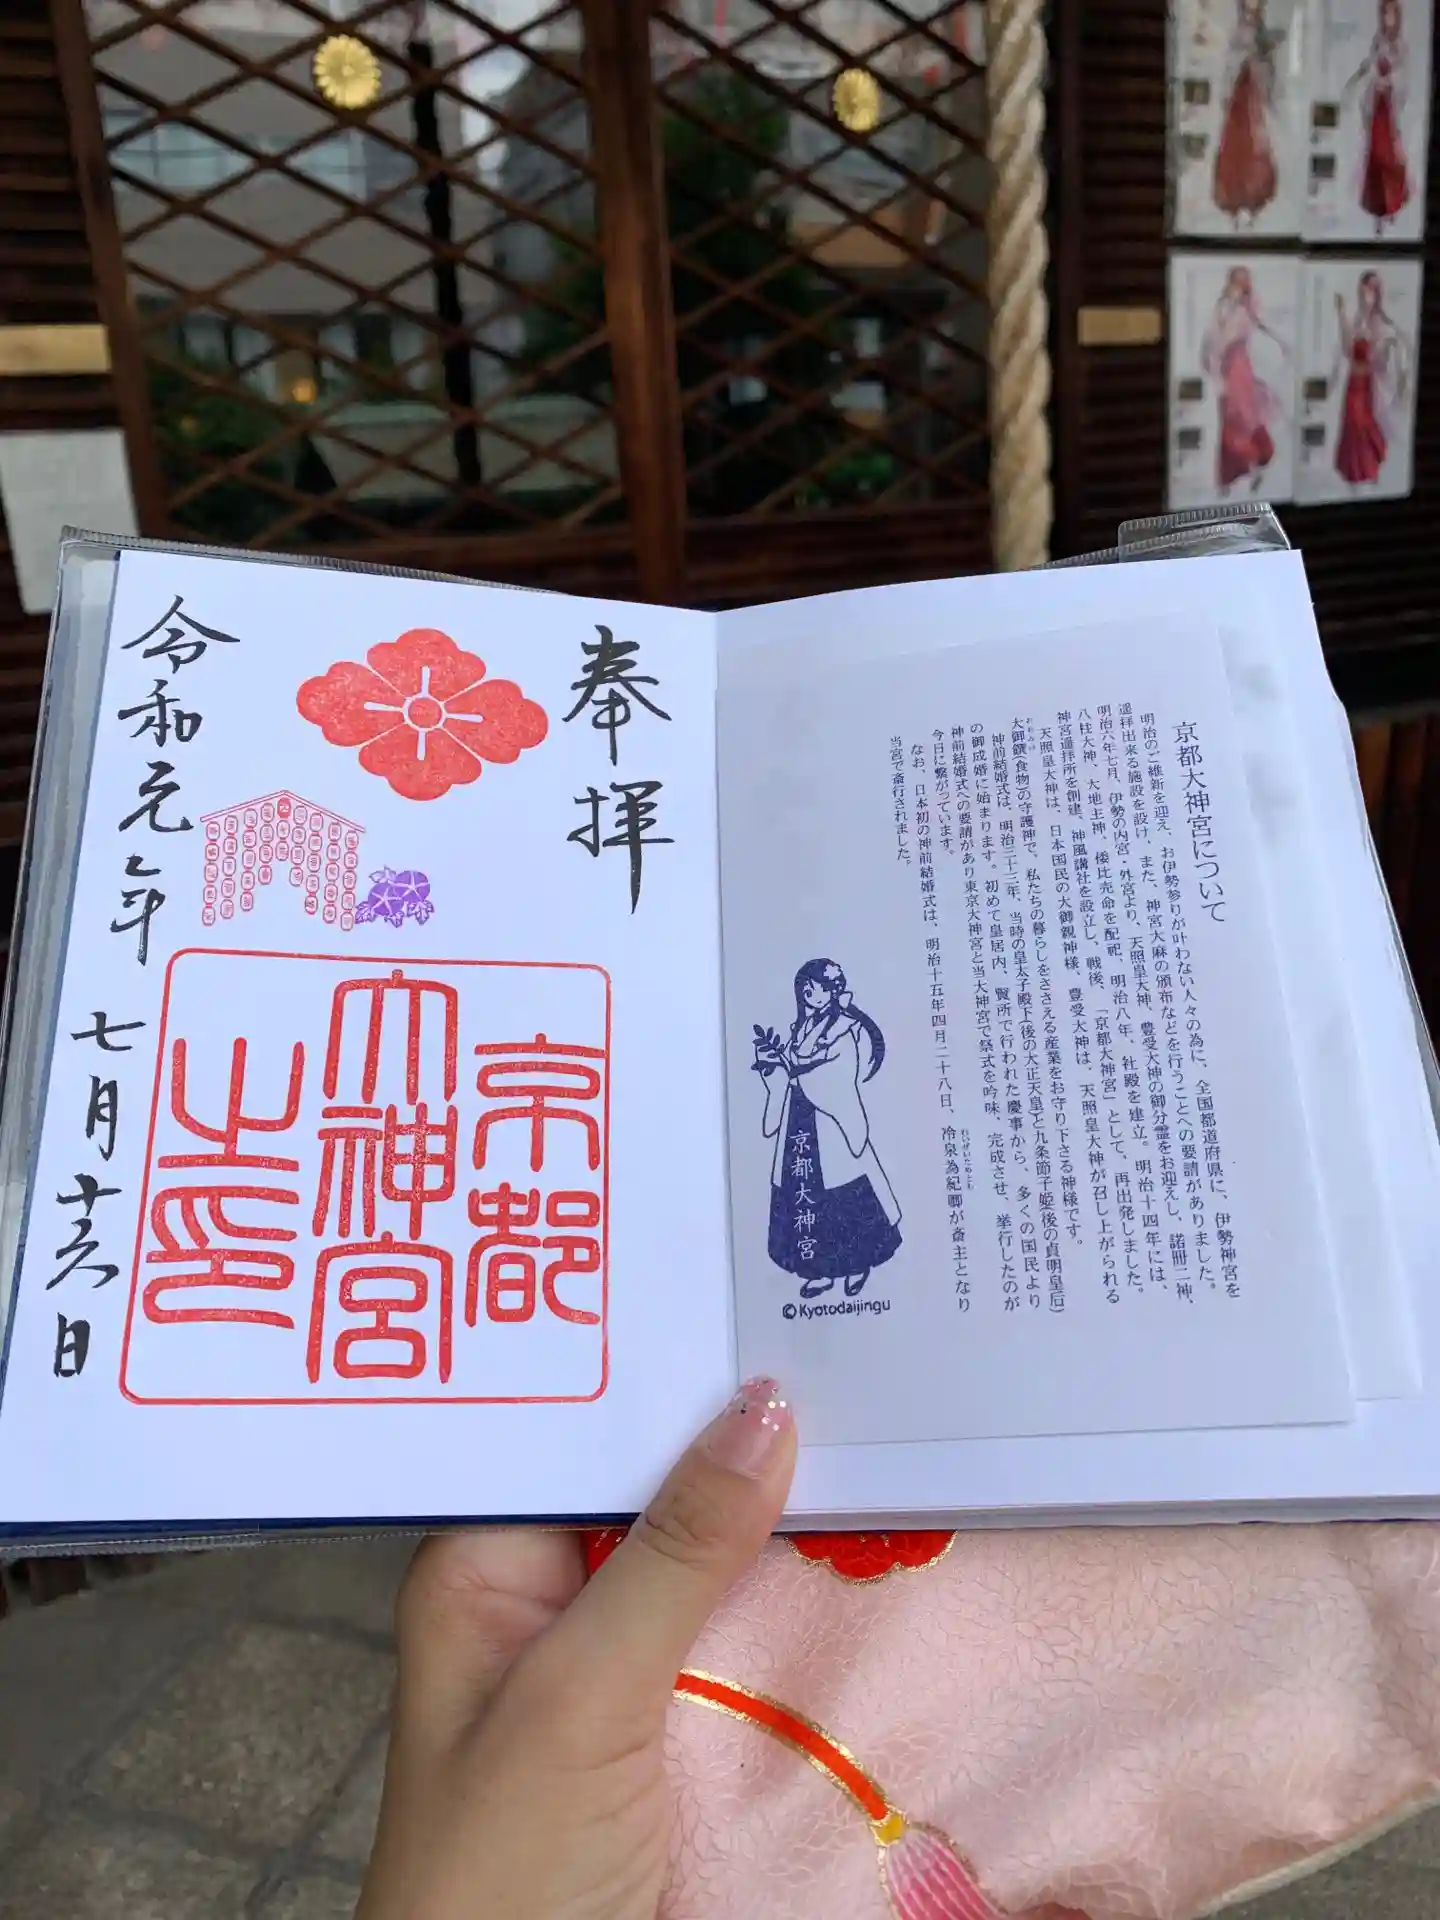 奉拝
京都
大神宮
之印
令和元年 七月十六日
京都大神宮について
明治のご維新を迎え、お伊勢参りが叶わない人々の為に、全国都道府県に、伊勢神宮を
遥拝出来る施設を設け、また、神宮大麻の頒布などを行うことへの要請がありました。
明治六年七月、伊勢の内宮・外宮より、天照皇大神、豊受大神の御分霊をお迎えし、諾冊二神、
八柱大神、大地主神、倭比売命を配祀、明治八年、社殿を建立。明治十四年には、
神宮遥拝所を創建、神風講社を設立し、戦後、「京都大神宮」として、再出発しました。
天照皇大神は、日本国民の大御親神様、豊受大神は、天照皇大神が召し上がられる
大御饌(食物)の守護神で、私たちの暮らしをささえる産業をお守り下さる神様です。
神前結婚式は、明治三十三年、当時の皇太子殿下(後の大正天皇)と九条節子姫(後の貞明皇后)
の御成婚に始まります。初めて皇居内、賢所で行われた慶事から、多くの国民より
神前結婚式への要請があり東京大神宮と当大神宮で祭式を吟味、完成させ、挙行したのが
今日に繋がっています。
なお、日本初の神前結婚式は、明治十五年四月二十八日、冷泉為紀卿が斎主となり
当宮で斎行されました。
京都大神宮
©Kyotodaijingu